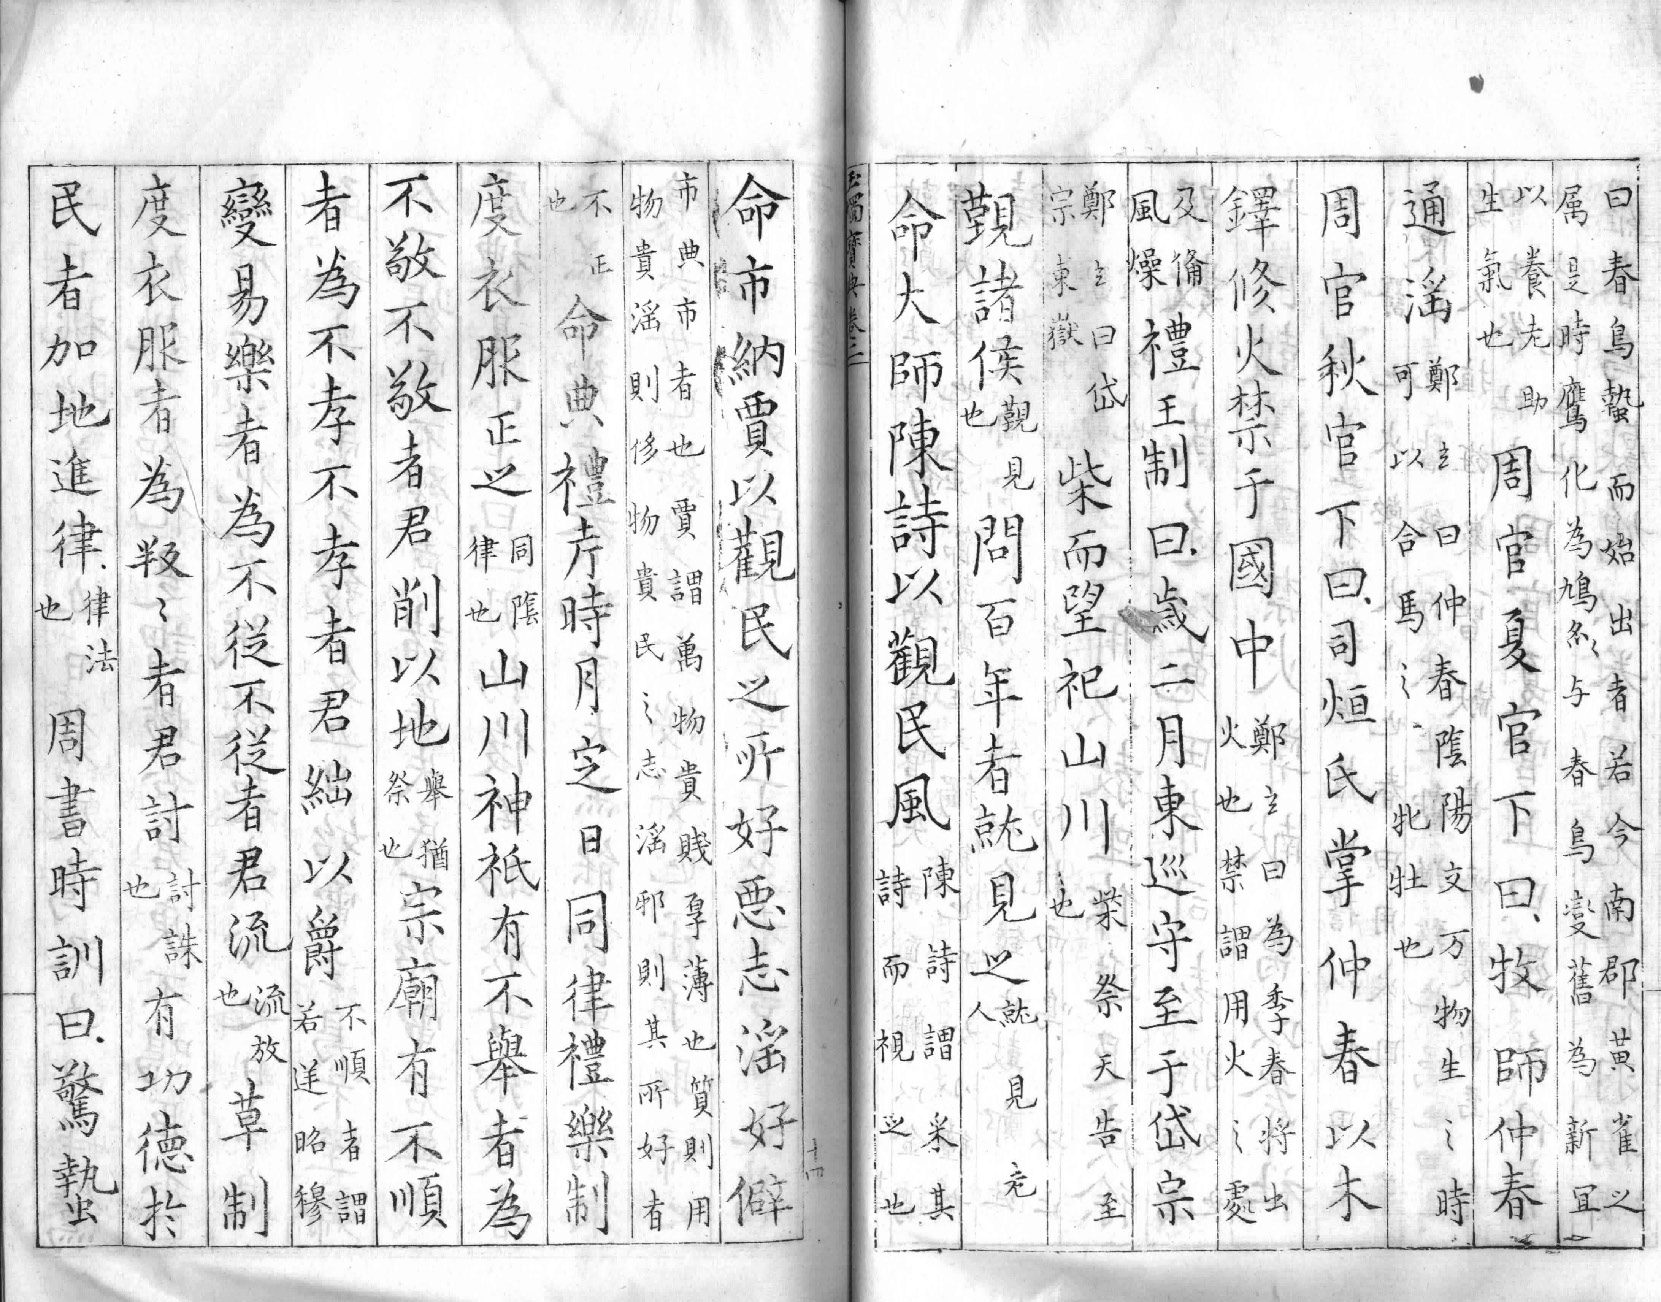 曰春鳥蟄而始出者若今南郡黄雀之
属是時鷹化為鳩〻与春鳥變舊為新冝
以養老助
生氣也
周官夏官下曰牧師仲春
通滛
鄭玄曰仲春陰陽交万物生之時
可以合馬之牝牡也
周官秋官下曰司烜氏掌仲春以木
鐸修火禁于國中
鄭玄曰為季春将出
火也禁謂用火之處
及俻
風燥
禮王制曰歳二月東巡守至于岱宗
鄭玄曰岱
宗東嶽
柴而望祀山川
柴祭天告至
也
覲諸侯
覲見
也
問百年者就見之
就見老
人
命大師陳詩以觀民風
陳詩謂采其
詩而視之也
玉燭寶典卷二
命市納賈以觀民之所好惡志滛好僻
市典市者也賈謂萬物貴賤厚薄也質則用
物貴滛則侈物貴民之志滛邪則其所好者
不正
也
命典禮考時月定日同律禮樂制
度衣服正之
同陰
律也
山川神祇有不舉者為
不敬不敬者君削以地
舉猶
祭也
宗廟有不順
者為不孝不孝者君絀以爵
不順者謂
若逆昭穆
變易樂者為不從不從者君流
流放
也
草制
度衣服者為叛〻者君討
討誅
也
有功德於
民者加地進律
律法
也
周書時訓曰驚蟄
十四